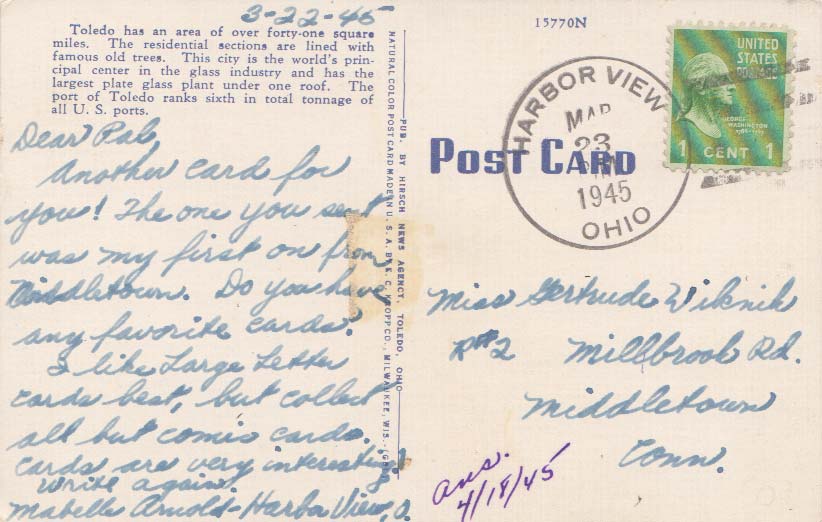 3-22-45
Toledo has an area of over forty-one square
miles. The residential sections are lined with
famous old trees. This city is the world's prin-
cipal center in the glass industry and has the
largest plate glass plant under one roof. The
port of Toledo ranks sixth in total tonnage of
all U. S. ports.
Dear Pal,
Another card for
you! The one you sent
was my first on from
Middletown. Do you have
any favorite cards.
I like Large Letter
cards best, but collect
all but comic cards.
Cards are very interesting!
Write again.
Mabelle Arnold-Harbor View, O.
PUB. BY HIRSCH NEWS AGENCY, TOLEDO, OHIO
NATURAL COLOR POST CARD MADE IN U. S. A. BY E. C. KROPP CO., MILWAUKEE, WIS.
15770N
POST CARD
HARBOR VIEW
MAR
23
1945
OHIO
UNITED
STATES
POSTAGE
GEORGE
WASHINGTON
1 CENT 1
Miss Gertrude Wiknik
R#2 Millbrook Rd.
Middletown
Conn.
ans.
4/18/45